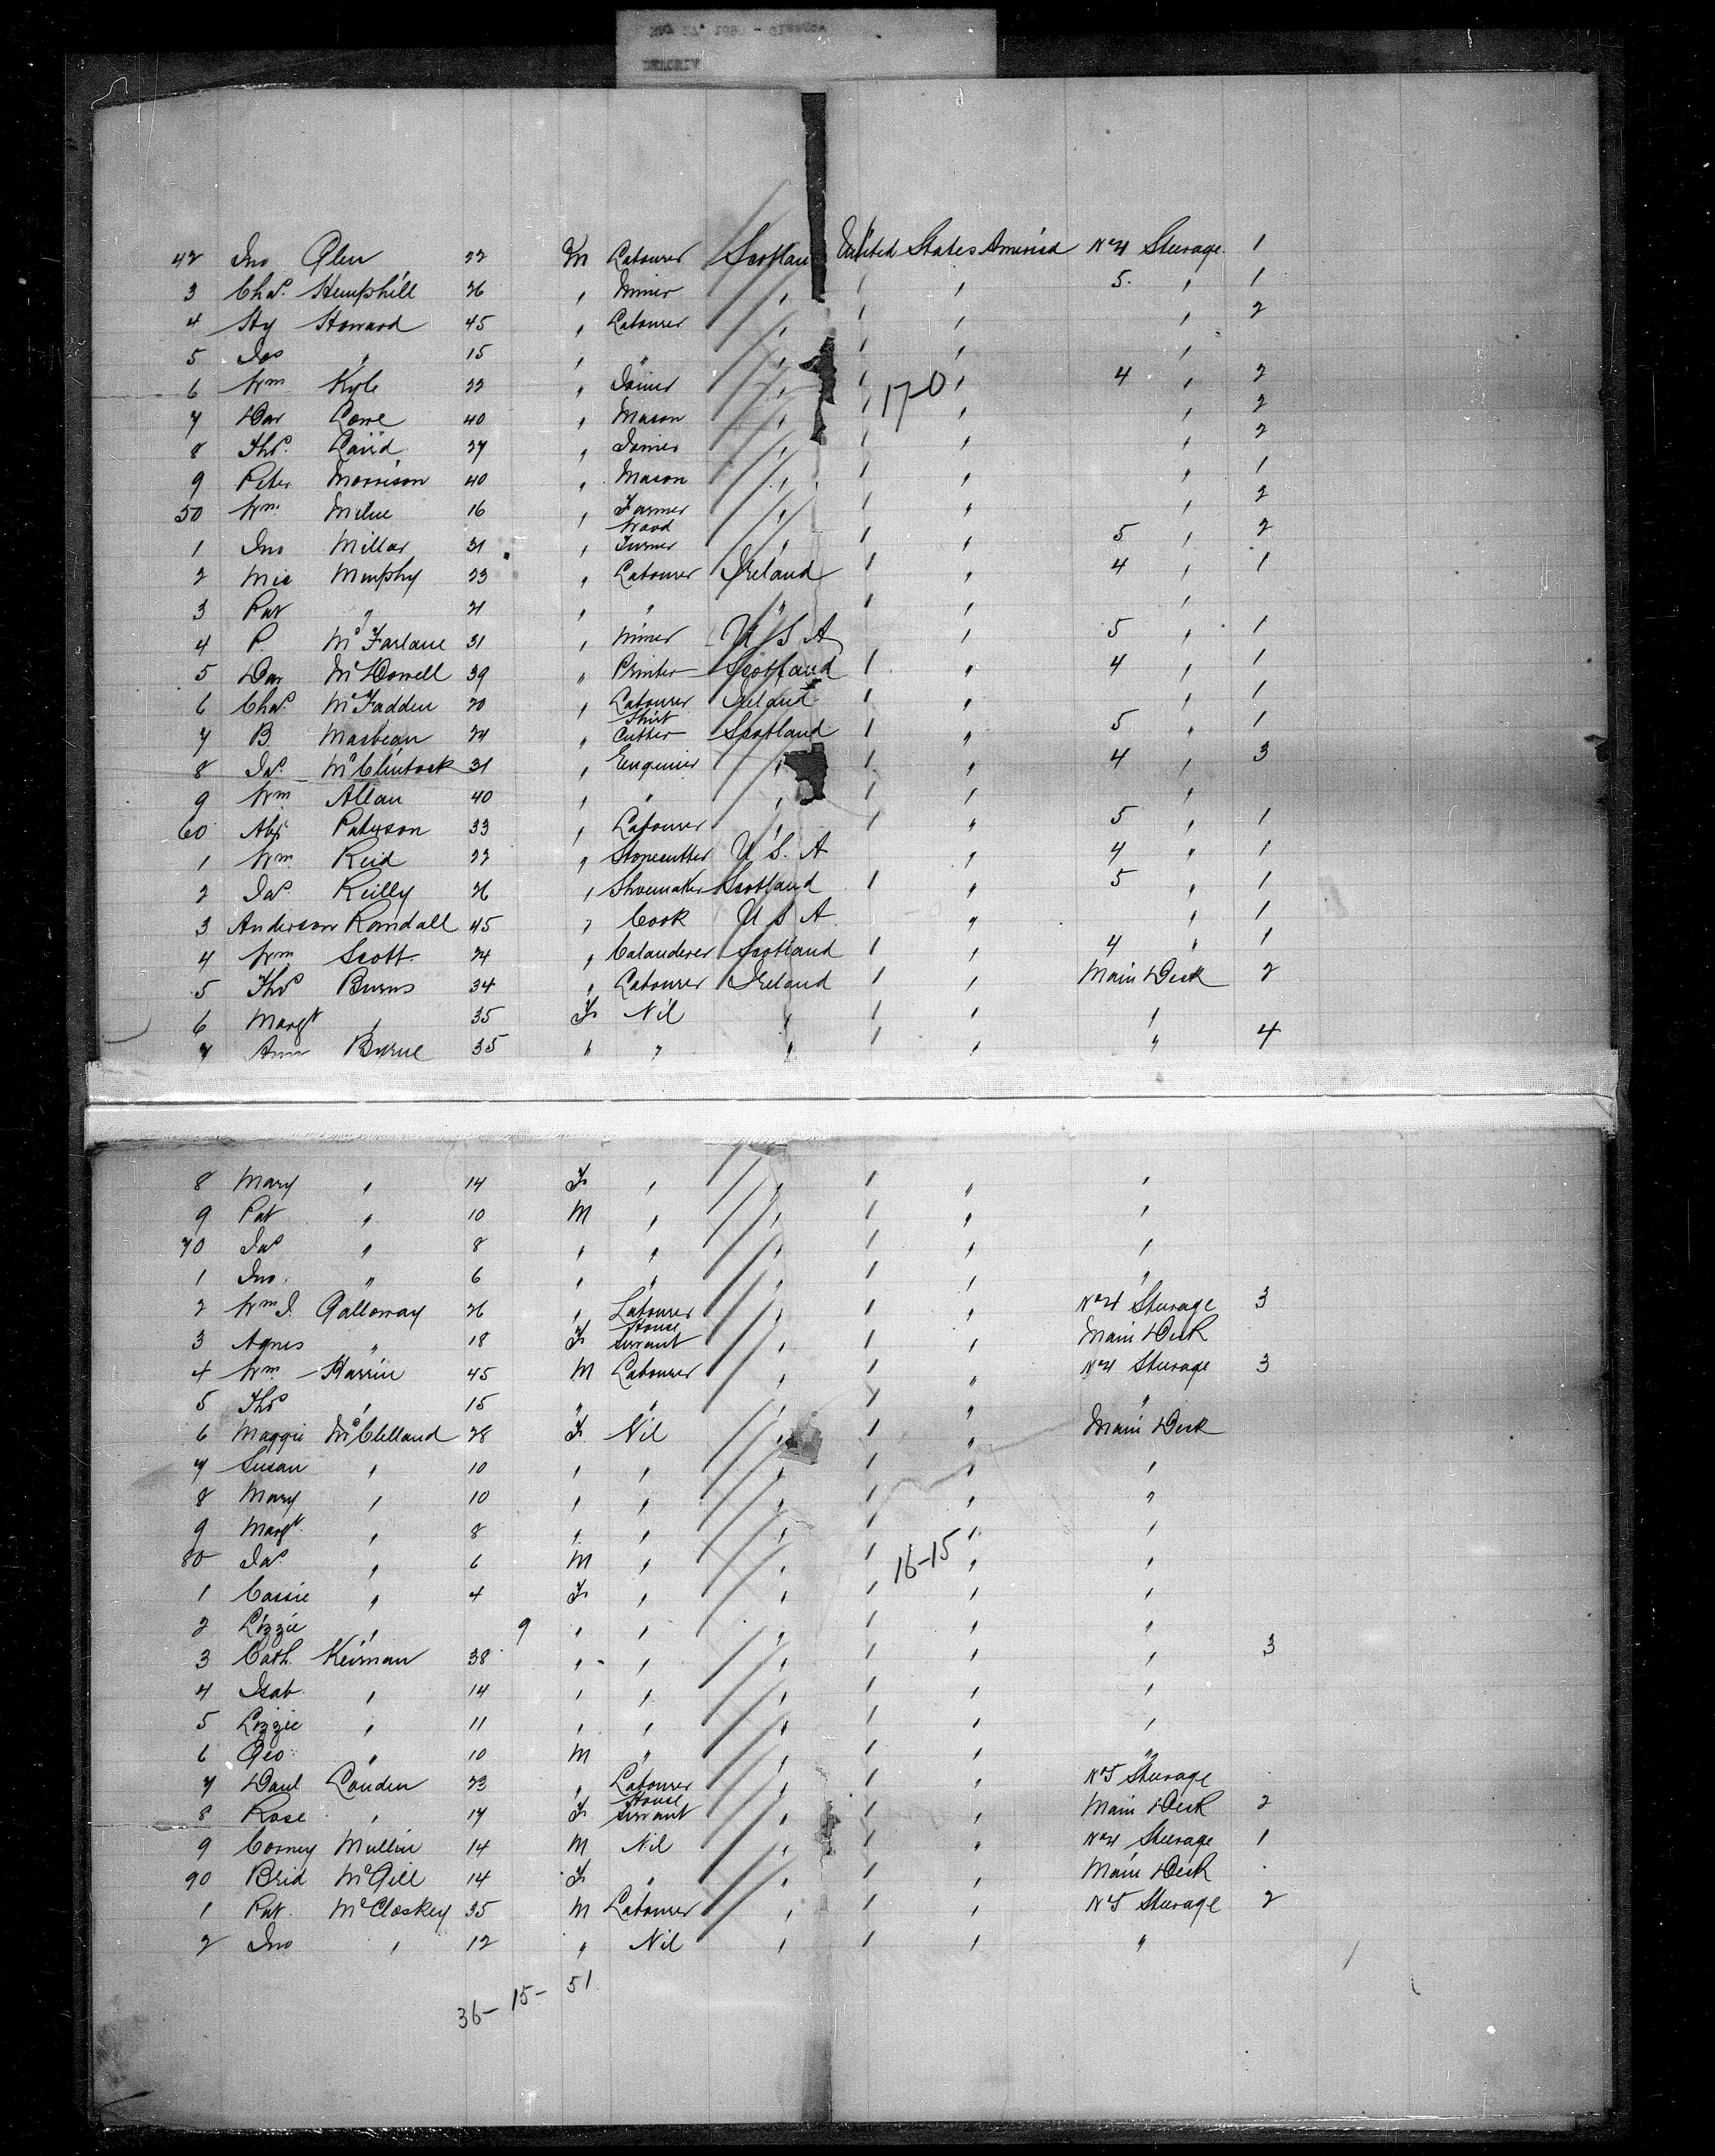 42 Jno Glen 22 M Labourer Scotlan United States America No 4 Steerage 1
3 Chas. Hemphill 26 " Miner " " " 5. " 1
4 Hy Howard 45 " Labourer " " " " 2
5 Jas " 15 " " " " " "
6 Wm Kyle 22 " Joiner " " " 4 " 2
7 Dav Lowe 40 " Mason " " " " 2
17-0
8 Thos. Laird 27 " Joiner " " " 2
9 Peter Morrison 40 " Mason " " " " 1
50 Wm. Milne 16 " Farmer " " " " 2
1 Jno Millar 31 " Wood Turner " " " 5 " 2
2 Mic Murphy 23 " Labourer Ireland " " 4 " 1
3 Pat " 21 " " " " " "
4 P. McFarlane 31 " Miner U S A " 5 " 1
5 Dav McDowell 39 " Printer Scotland " " 4 " 1
6 Chas. McFadden 20 " Labourer Ireland " " " 1
7 B. Macbean 24 " Shirt Cutter Scotland " " 5 " 1
8 Jas. McClintock 31 " Engineer " " " 4 " 3
9 Wm Allan 40 " " " " " "
60 Abr Paterson 33 " Labourer " " " 5 " 1
1 Wm Reid 22 " Stonecutter U. S. A " 4 " 1
2 Jas. Reilly 26 " Shoemaker Scotland " " 5 " 1
3 Anderson Randall 45 " Cook U S A " " 1
4 Wm Scott 24 " Calanderer Scotland " " 4 " 1
5 Thos Burns 34 " Labourer Ireland " " Main Deck 2
6 Margt " 35 F Nil " " " "
7 Ann Byrne 35 " " " " " " 4
8 Mary " 14 F " " " " "
9 Pat " 10 M " " " " "
70 Jas " 8 " " " " " "
1 Jno. " 6 " " " " " "
2 Wm J. Galloway 26 " Labourer " " " No 4 Steerage 3
3 Agnes " 18 F House Servant " " " Main Deck
4 Wm Harrin 45 M Labourer " " " No 4 Steerage 3
5 Thos " 15 " " " " " "
6 Maggie McClelland 28 F Nil " " " Main Deck
7 Susan " 10 " " " " " "
8 Mary " 10 " " " " " "
9 Margt. " 8 " " " " " "
80 Jas. " 6 M " " " " "
16-15
1 Cassie " 4 F " " " " "
2 Lizzie " 9 " " " " " "
3 Cath. Keirnan 38 " " " " " " 3
4 Isab. " 14 " " " " " "
5 Lizzie " 11 " " " " " "
6 Geo. " 10 M " " " " "
7 Danl Louden 23 " Labourer " " " No 5 Steerage
8 Rose " 14 F House Servant " " " Main Deck 2
9 Corney Mullin 14 M Nil " " " No 4 Steerage 1
90 Brid McGill 14 F " " " " Main Deck
1 Pat. McCloskey 35 M Labourer " " " No 5 Steerage 2
2 Jno " 12 " Nil " " " "
36- 15- 51